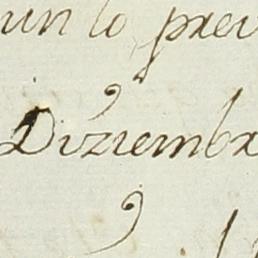 un lo prev
Diziembr